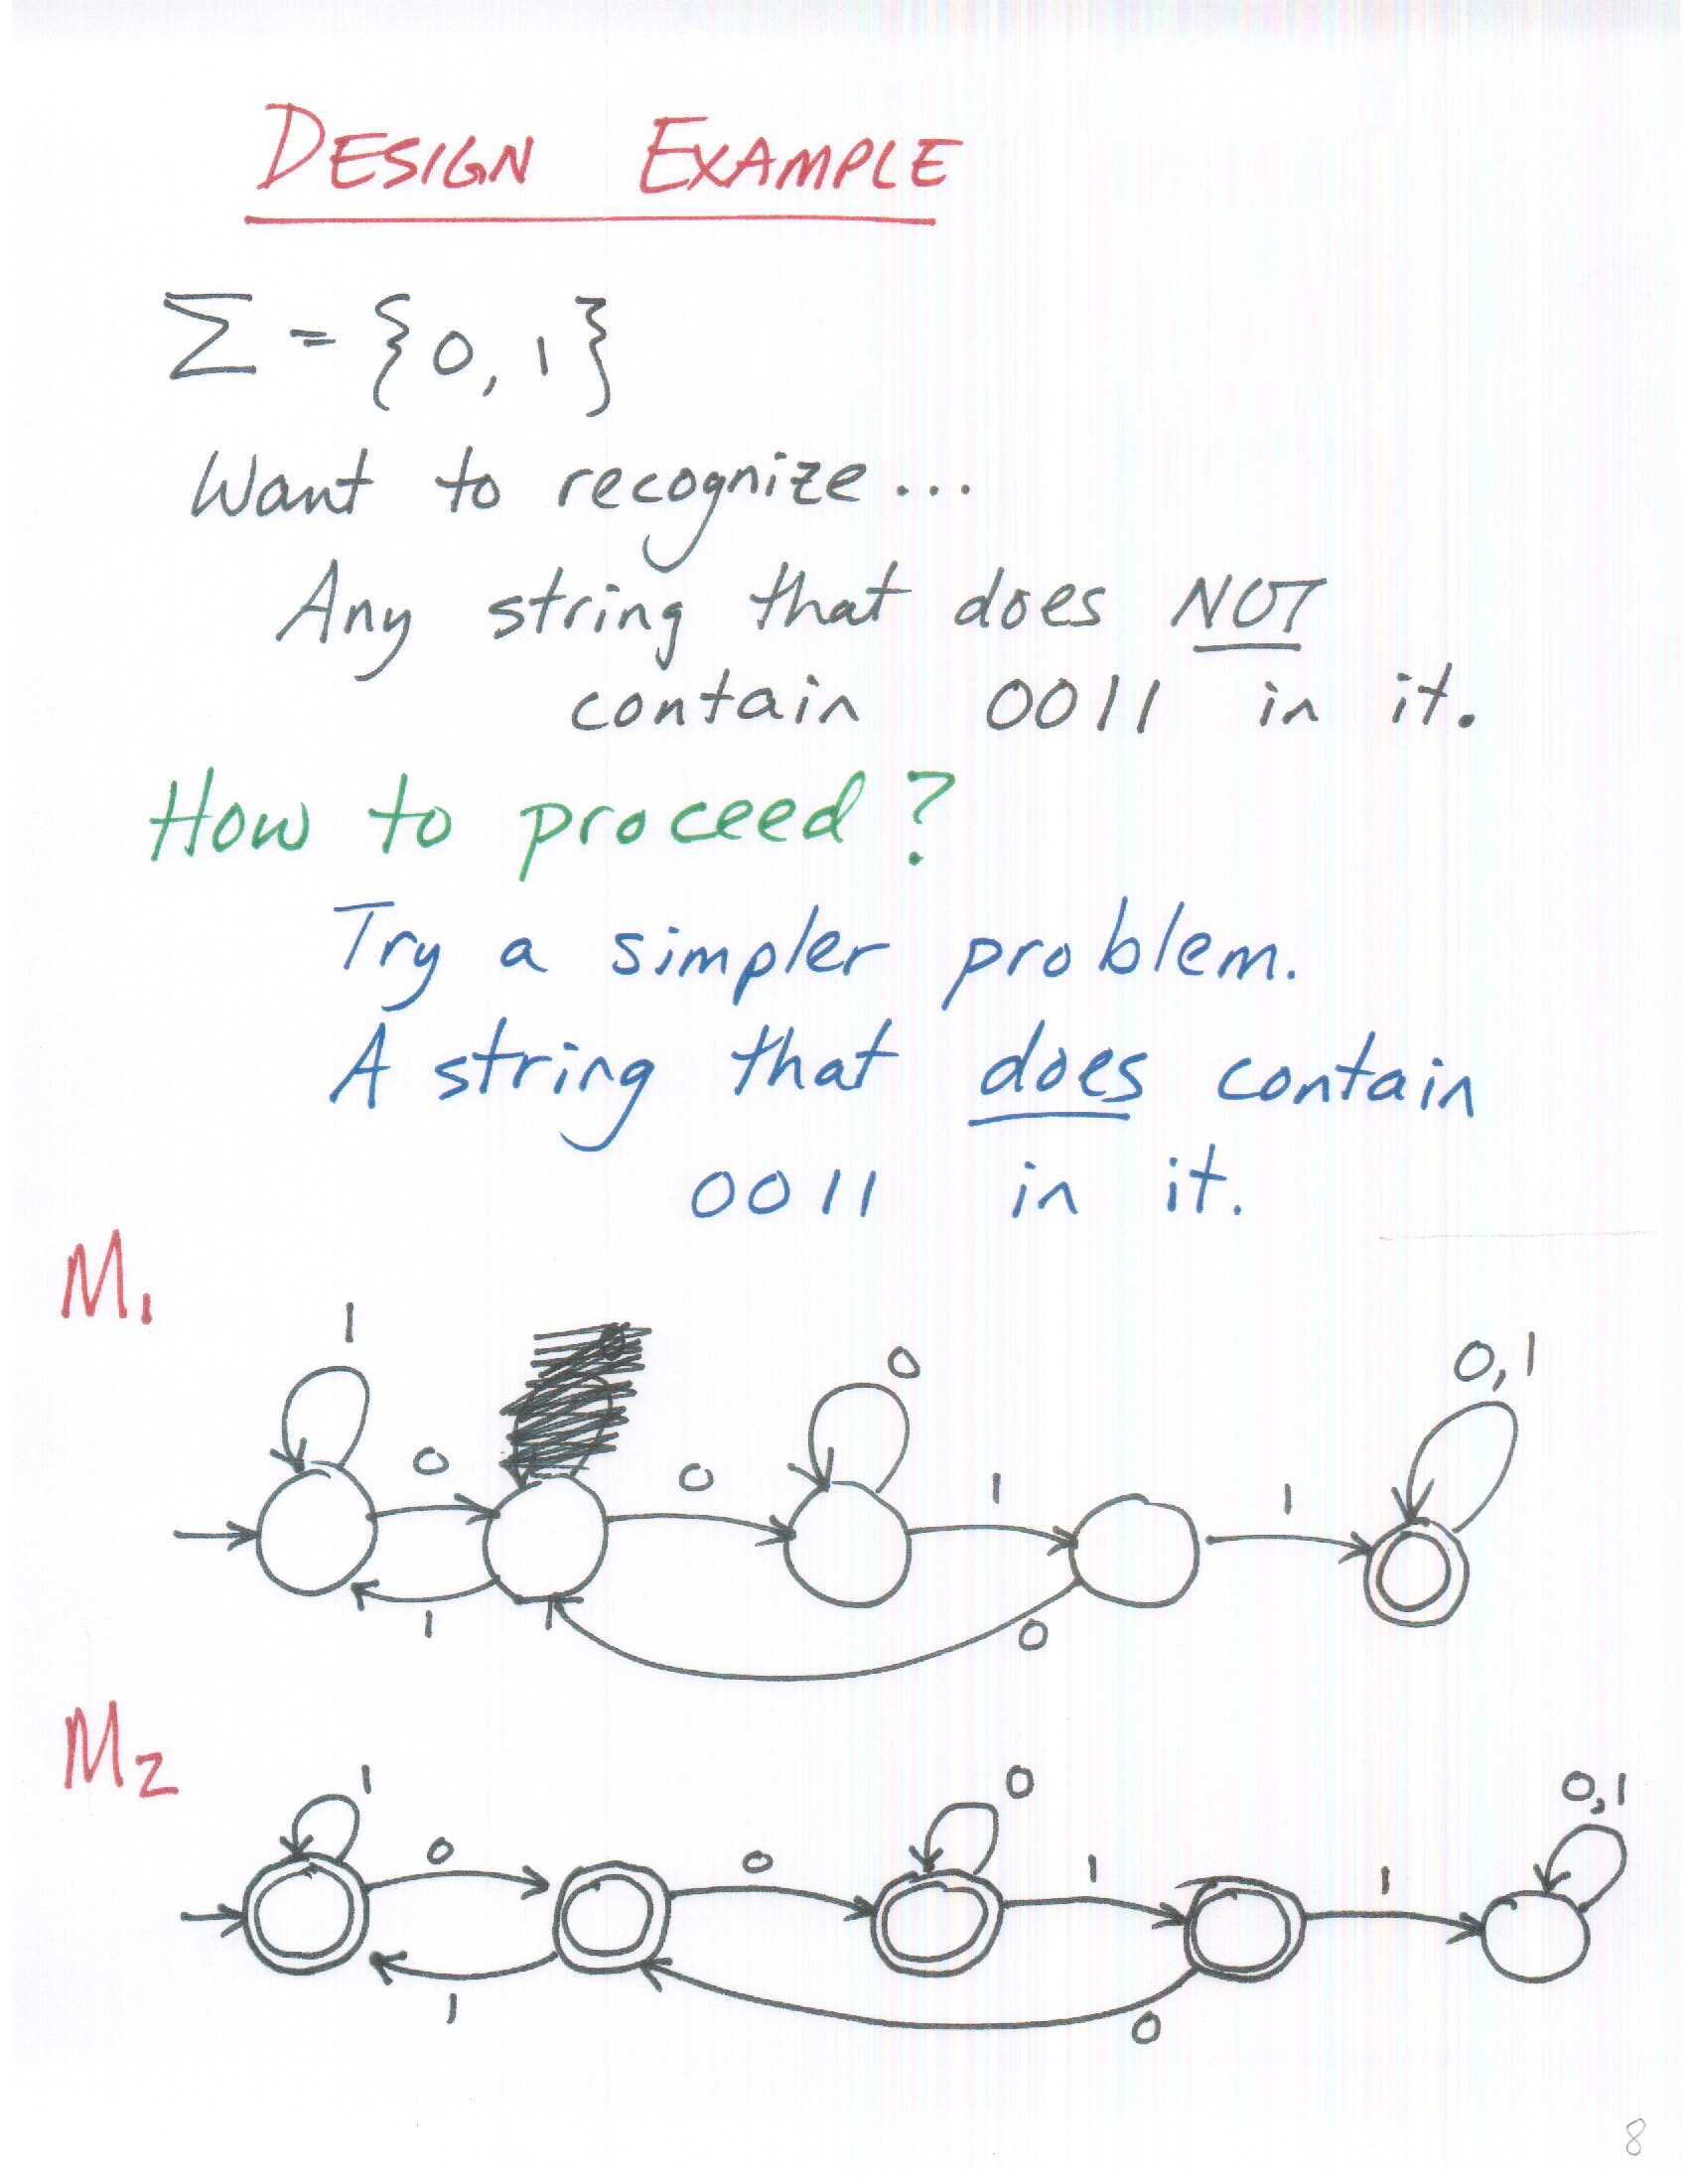 DESIGN EXAMPLE
Σ = {0, 1}
Want to recognize...
Any string that does NOT
contain 0011 in it.
How to proceed?
Try a simpler problem.
A string that does contain
0011 in it.
M1
1
0
0,1
0
0
1
1
1
0
M2
1
0
0,1
0
0
1
1
1
0
8